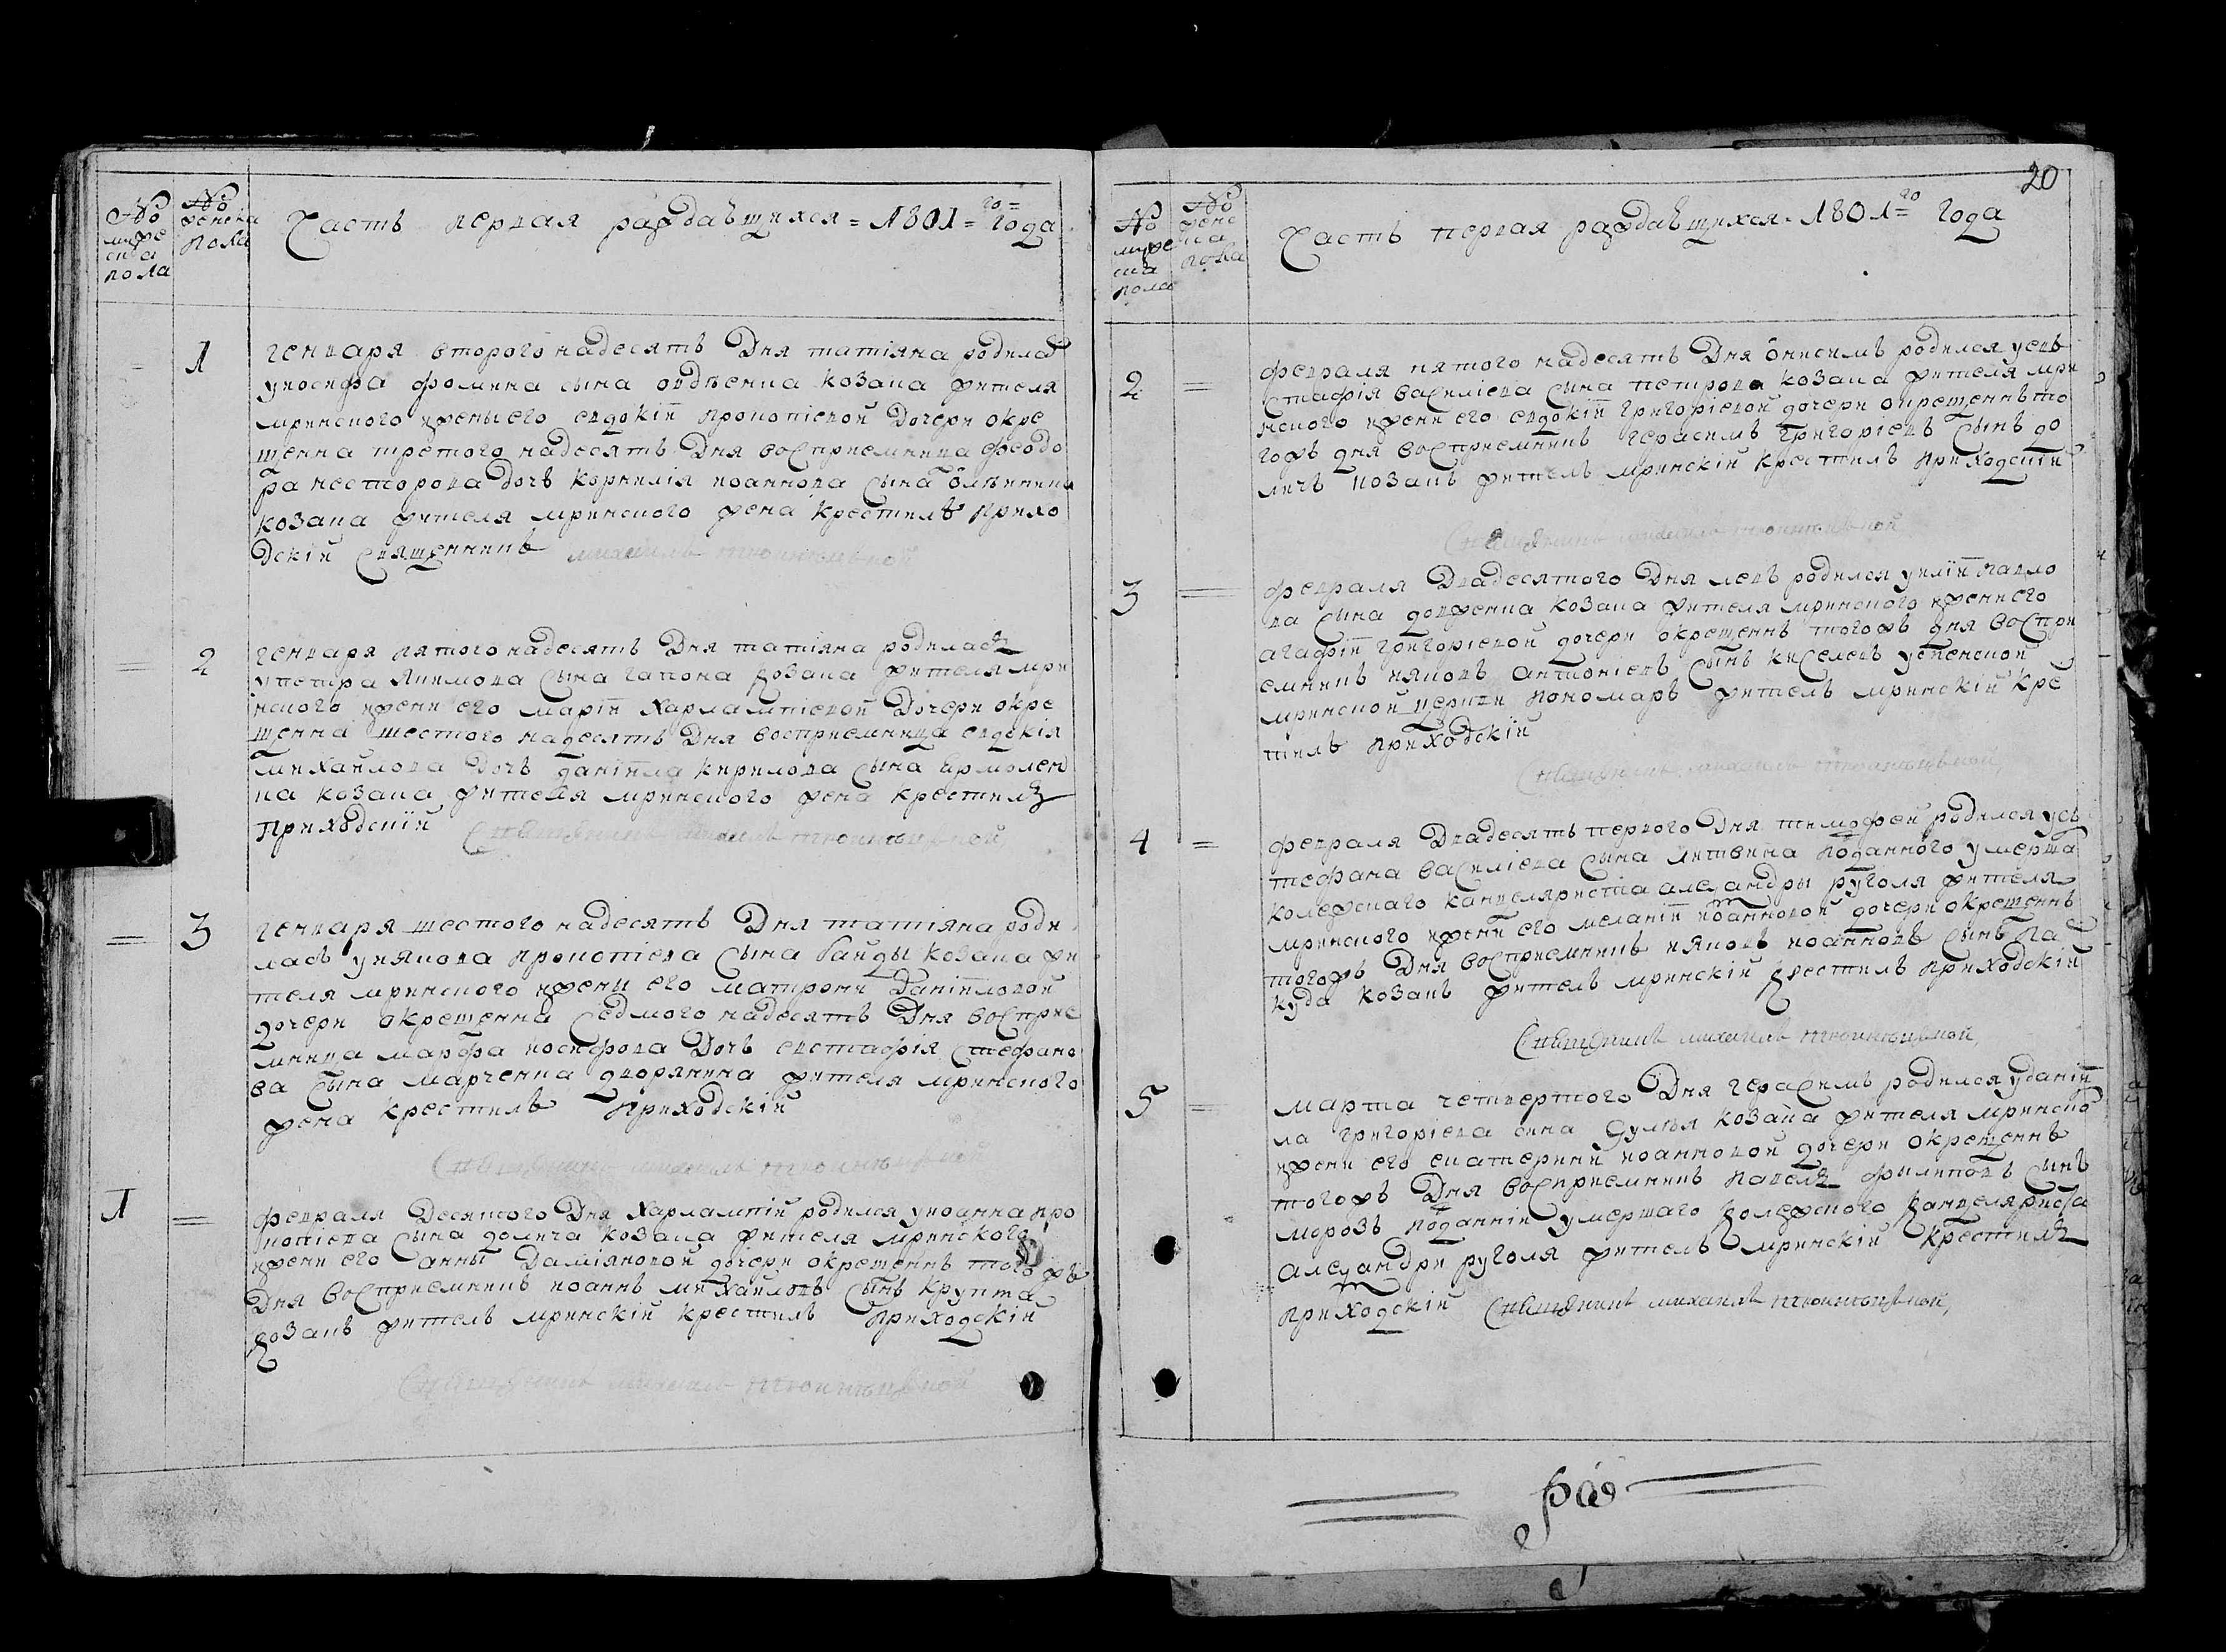 № мужеска пола
№ женска пола
Часть первая раждающихся = 1801 = го = года
1
генваря второго надесять Дня татіяна родилас
уиосифа фомина сына овдѣенка козака жителя
мринского ижены его евдокіи прокопіевой Дочери окре
щенна третого надесять Дня восприемница феодо
ра несторова дочь корнилія иоаннова сына
козака жителя мринского жена крестилъ прихо
дскій священникъ михаилъ
2
генваря пятого надесять Дня татіяна родилась
упетра якимова сына гапона козака жителя мри
нского ижени его маріи Харлампіевой Дочери окре
щенна шестого надесять Дня восприемница евдокія
михайлова Дочь даніила кирилова сына ярмолен
ка козака жителя мринского жена крестилъ
приходскій священникъ михаилъ
3
генваря шестого надесять Дня татіяна роди
лась уиякова прокопіева сына байды козака жи
теля мринского ижены его матрони Даніиловой
дочери окрещенна седмого надесять Дня восприе
мница марфа иосифова Дочь евстафія стефано
ва сына марченка дворянина жителя мринского
жена крестилъ приходскій
священникъ михаилъ
1
февраля Десятого Дня Харлампій родился уиоанна про
копіева сына долича козака жителя мринского
ижени его анны Даміяновой дочери окрещеннъ того жъ
Дня восприемникъ иоаннъ михайловъ сынъ крупта
козакъ житель мринскій крестилъ приходскій
священникъ михаилъ
20
№ мужеска пола
№ женска пола
Часть первая раждающихся = 1801 = го года
2
февраля пятого надесять Дня онисимъ родился уев
стафія василіева сына петрова козака жителя мри
нского ижени его евдокіи григоріевой дочери окрещеннъ то
гожъ дня восприемникъ герасимъ григоріевъ сынъ до
личъ козакъ житель мринскій крестилъ приходскій
священникъ михаилъ
3
февраля Двадесятого Дня левъ родился уиліи павло
ва сына довженка козака жителя мринского ижени его
агафіи григоріевой дочери окрещеннъ тогожъ дня воспри
емникъ ияковъ антоніевъ сынъ киселевъ успенской
мринской церкви пономарь житель мринскій кре
тилъ приходскій
священникъ михаилъ
4
февраля Двадесять первого Дня тимофей родился ус
тефана василіева сына литвина поданного умерша
колежского канцеляриста алеѯандры руголя жителя
мринского ижени его меланіи иоанновой дочери окрещеннъ
тогожъ Дня восприемникъ ияковъ иоанновъ сынъ па
куда козакъ житель мринскій крестилъ приходскій
священникъ михаилъ
5
марта четвертого Дня герасимъ родился уданіи
ла григоріева сина козака жителя мринско
ижени его екатерини иоанновой дочери окрещеннъ
тогожъ Дня восприемникъ павелъ филиповъ сынъ
морозъ поданній умершаго колежского канцеляриста
алеѯандри руголя житель мринскій крестилъ
приходскій священникъ михаилъ